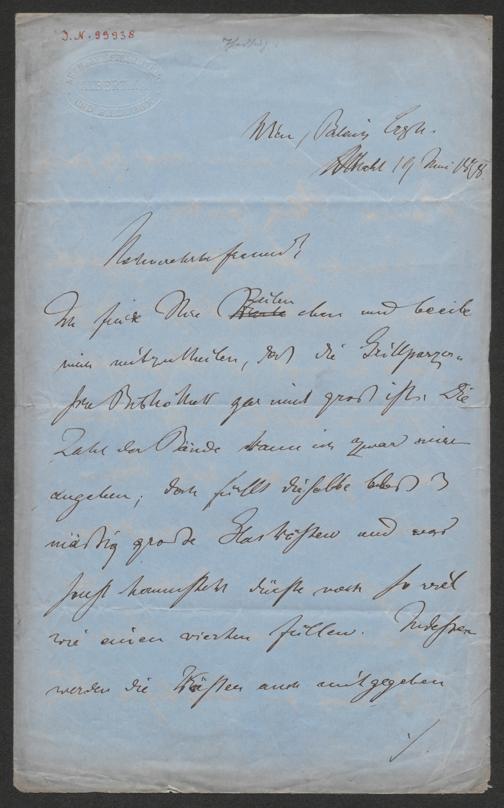 I.N. 99938
Wien, Palais Erzh.
19 Mai 1878
Hochverehrter Freund!
Ich finde Ihre Karte Zeilen eben und beeile
mich mitzutheilen, daß die Grillparzer-
sche Bibliothek gar nicht groß ist. Die
Zahl der Bände kann ich zwar nicht
angeben; doch füllt dieselbe bloß 3
mäßig große Glaskästen und was
sonst herumsteht dürfte noch so viel
wie einen vierten füllen. Indessen
werden die Kästen auch mitgegeben
./.